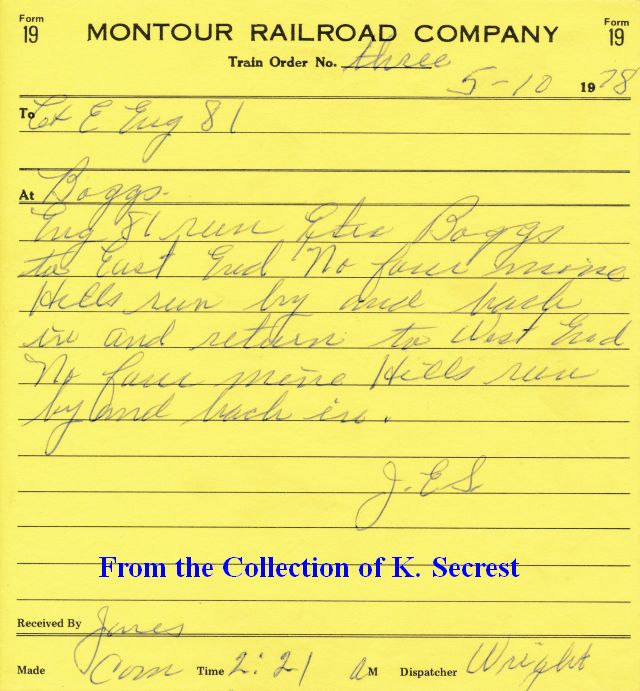 Form 19 MONTOUR RAILROAD COMPANY Form 19
Train Order No. three
5-10 1978
To Ex E Eng 81
At Boggs.
Eng 81 run Extra Boggs
to East End No four mine
Hills run by and back
in and return to West End
No four mine Hills run
by and back in.
J.E.S.
From the Collection of K. Secrest
Received By Jones
Made Com Time 2:21 AM Dispatcher Wright